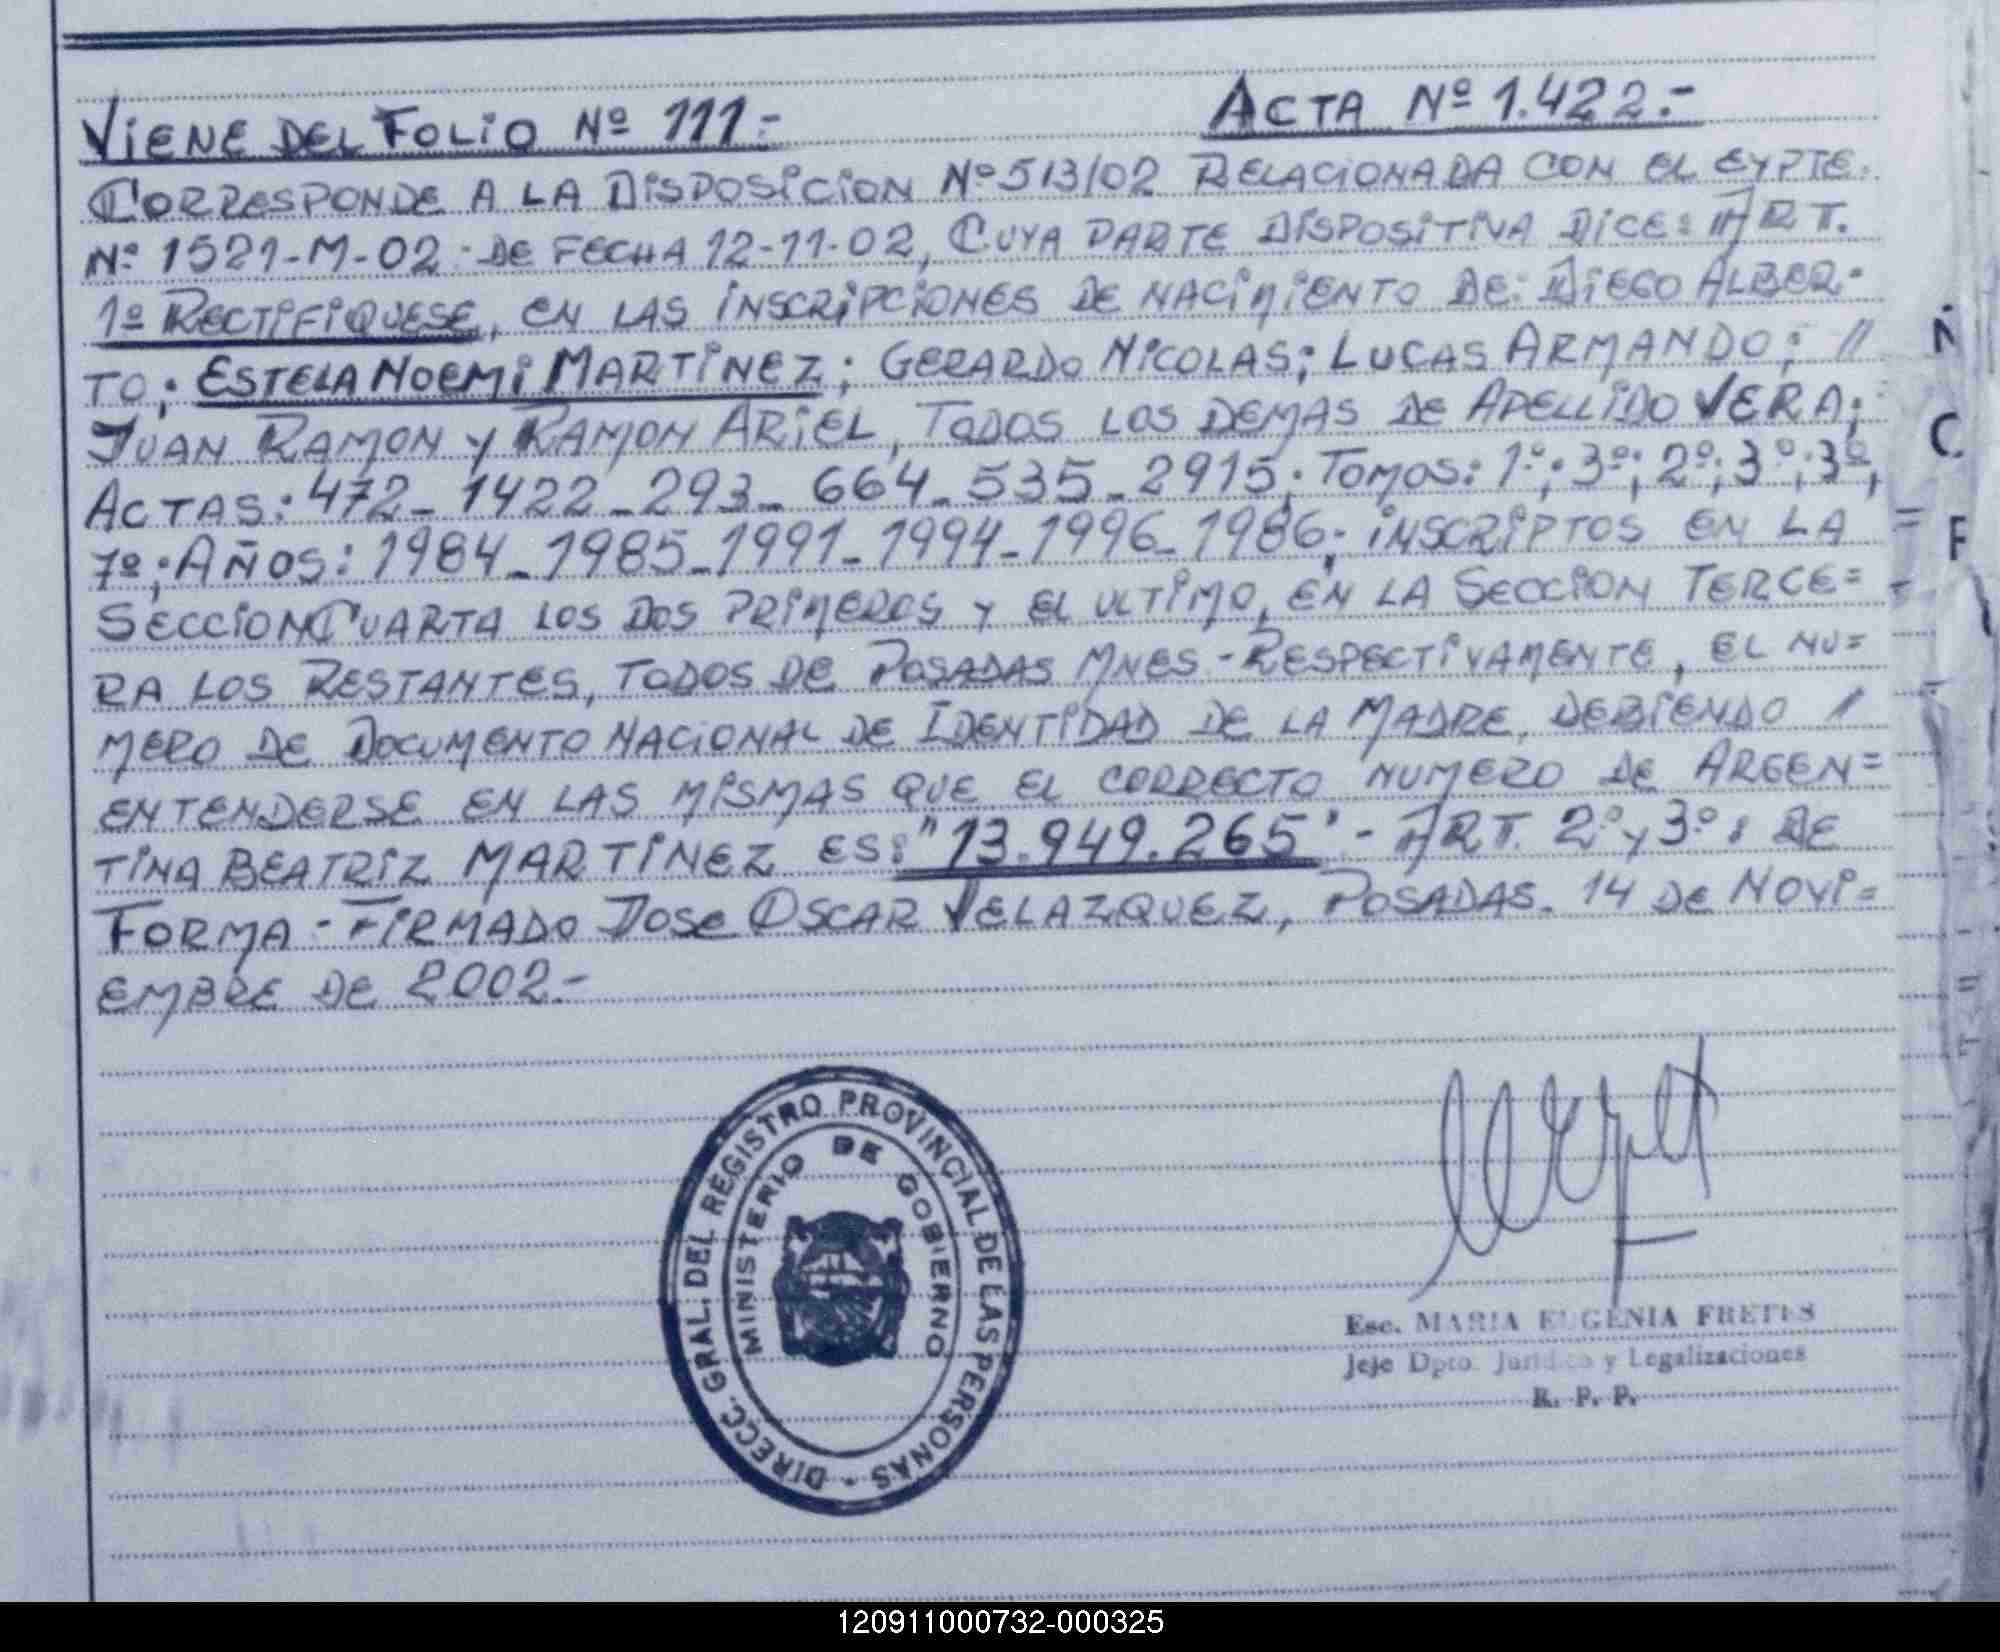 VIENE DEL FOLIO Nº 111.- ACTA Nº 1.422.-
CORRESPONDE A LA DISPOSICION Nº 513/02 RELACIONADA CON EL EXPTE.
Nº 1521-M-02 - DE FECHA 12-11-02, CUYA PARTE DISPOSITIVA DICE: ART.
1º RECTIFIQUESE, EN LAS INSCRIPCIONES DE NACIMIENTO DE: DIEGO ALBER-
TO; ESTELA NOEMI MARTINEZ; GERARDO NICOLAS; LUCAS ARMANDO; //
JUAN RAMON Y RAMON ARIEL, TODOS LOS DEMAS DE APELLIDO VERA;
ACTAS: 472_ 1422_ 293_ 664_ 535_ 2915; TOMOS: 1º; 3º; 2º; 3º; 3º,
7º; AÑOS: 1984_ 1985_ 1991_ 1994_ 1996_ 1986; INSCRIPTOS EN LA
SECCION CUARTA LOS DOS PRIMEROS Y EL ULTIMO, EN LA SECCION TERCE=
RA LOS RESTANTES, TODOS DE POSADAS MNES - RESPECTIVAMENTE, EL NU=
MERO DE DOCUMENTO NACIONAL DE IDENTIDAD DE LA MADRE, DEBIENDO /
ENTENDERSE EN LAS MISMAS QUE EL CORRECTO NUMERO DE ARGEN=
TINA BEATRIZ MARTINEZ ES: "13.949.265" - ART. 2º y 3º: DE
FORMA - FIRMADO JOSE OSCAR VELAZQUEZ, POSADAS. 14 DE NOVI=
EMBRE DE 2002.-
DIRECC. GRAL. DEL REGISTRO PROVINCIAL DE LAS PERSONAS -
MINISTERIO DE GOBIERNO
Esc. MARIA EUGENIA FRETES
Jeje Dpto. Juridico y Legalizaciones
R. P. P.
120911000732-000325